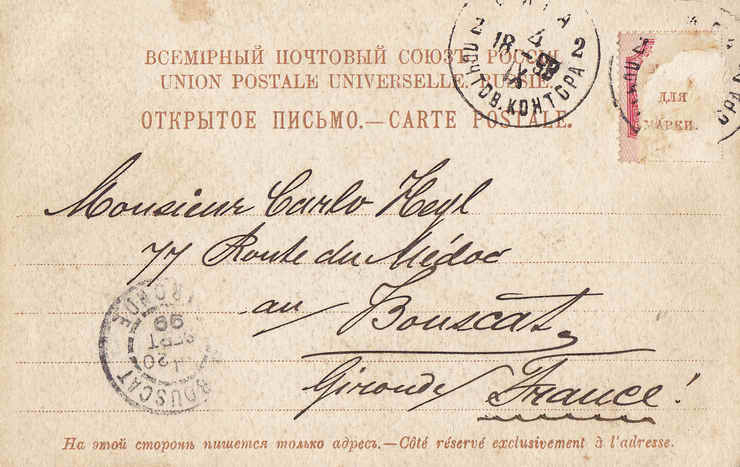 ВСЕМІРНЫЙ ПОЧТОВЫЙ СОЮЗЪ. РОССІЯ.
UNION POSTALE UNIVERSELLE. RUSSIE.
ОТКРЫТОЕ ПИСЬМО.—CARTE POSTALE.
4
18 2
ПОЧ. ТОВ. КОНТОРА
ДЛЯ
МАРКИ.
Monsieur Carlo Heyl
77 Route du Médoc
au Bouscat,
Gironde France!
BOUSCAT
GIRONDE
20
SEPT
99
На этой сторонѣ пишется только адресъ.—Côté réservé exclusivement à l'adresse.